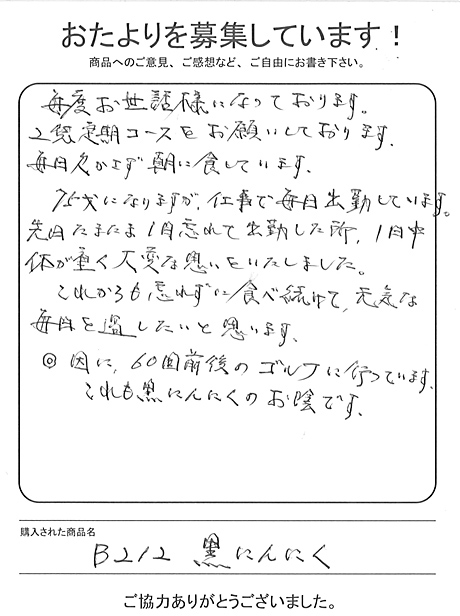 おたよりを募集しています！
商品へのご意見、ご感想など、ご自由にお書き下さい。
毎度お世話様になっております。
2袋定期コースをお願いしております。
毎日欠かさず朝に食しています。
75才になりますが、仕事で毎日出勤しています。
先日たまたま1日忘れて出勤した所、1日中
体が重く大変な思いをいたしました。
これからも忘れずに食べ続けて、元気な
毎日を過したいと思います。
◎因に、60回前後のゴルフに行っています。
これも黒にんにくのお陰です。
購入された商品名
B212 黒にんにく
ご協力ありがとうございました。